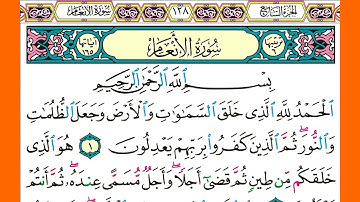 الجزء السابع ١٢٨ سورة الأنعام
ترتيبها ٦ سُورَةُ الأَنْعَامِ آياتها ١٦٥
بِسْمِ ٱللَّهِ ٱلرَّحْمَٰنِ ٱلرَّحِيمِ
ٱلْحَمْدُ لِلَّهِ ٱلَّذِي خَلَقَ ٱلسَّمَٰوَٰتِ وَٱلْأَرْضَ وَجَعَلَ ٱلظُّلُمَٰتِ
وَٱلنُّورَ ۖ ثُمَّ ٱلَّذِينَ كَفَرُوا۟ بِرَبِّهِمْ يَعْدِلُونَ ١ هُوَ ٱلَّذِي
خَلَقَكُم مِّن طِينٍ ثُمَّ قَضَىٰٓ أَجَلًا ۖ وَأَجَلٌ مُّسَمًّى عِندَهُۥ ۖ ثُمَّ أَنتُمْ